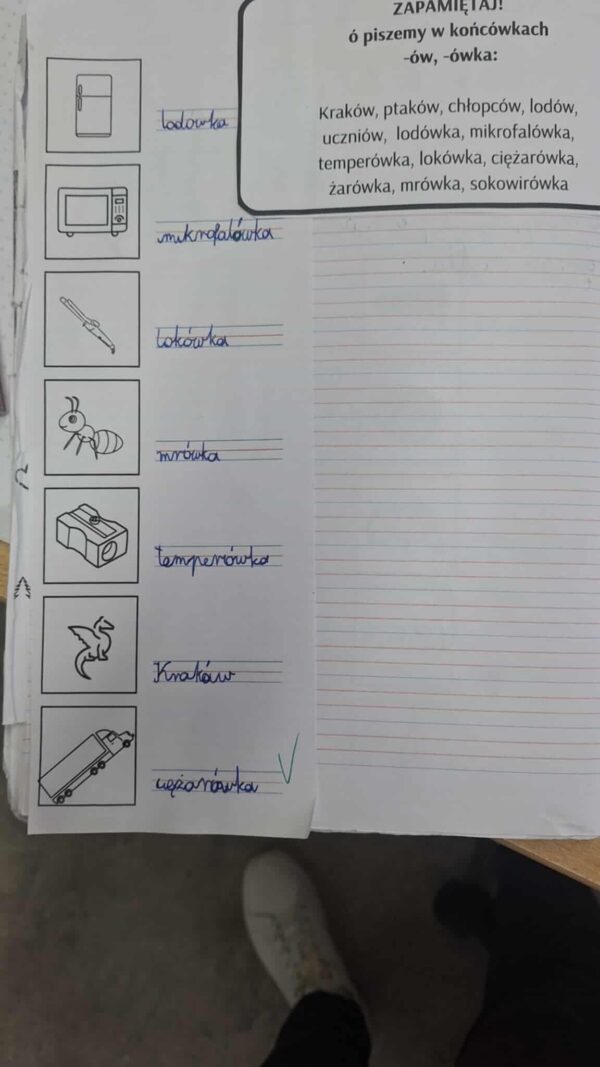 ZAPAMIĘTAJ!
ó piszemy w końcówkach
-ów, -ówka:
Kraków, ptaków, chłopców, lodów,
uczniów, lodówka, mikrofalówka,
temperówka, lokówka, ciężarówka,
żarówka, mrówka, sokowirówka
lodówka
mikrofalówka
lokówka
mrówka
temperówka
Kraków
ciężarówka